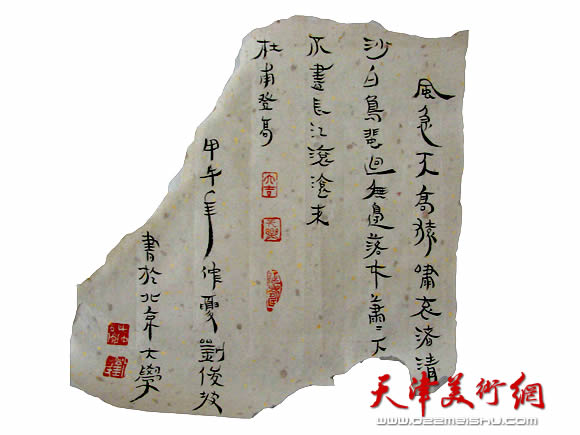 風急天高猿嘯哀渚清
沙白鳥蜚迴無邊落木蕭〻下
不盡長江滾滾來
杜甫登高
甲午年仲夏劉俊坡
書於北京大學
天津美術網
www.022meishu.com